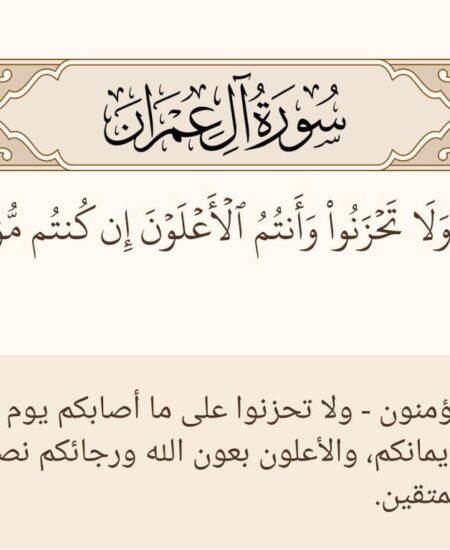 سُورَةُ آلِ عِمْرَان
وَلَا تَحْزَنُوا۟ وَأَنتُمُ ٱلْأَعْلَوْنَ إِن كُنتُم
ؤمنون - ولا تحزنوا على ما أصابكم يوم
يمانكم، والأعلون بعون الله ورجائكم نص
متقين.